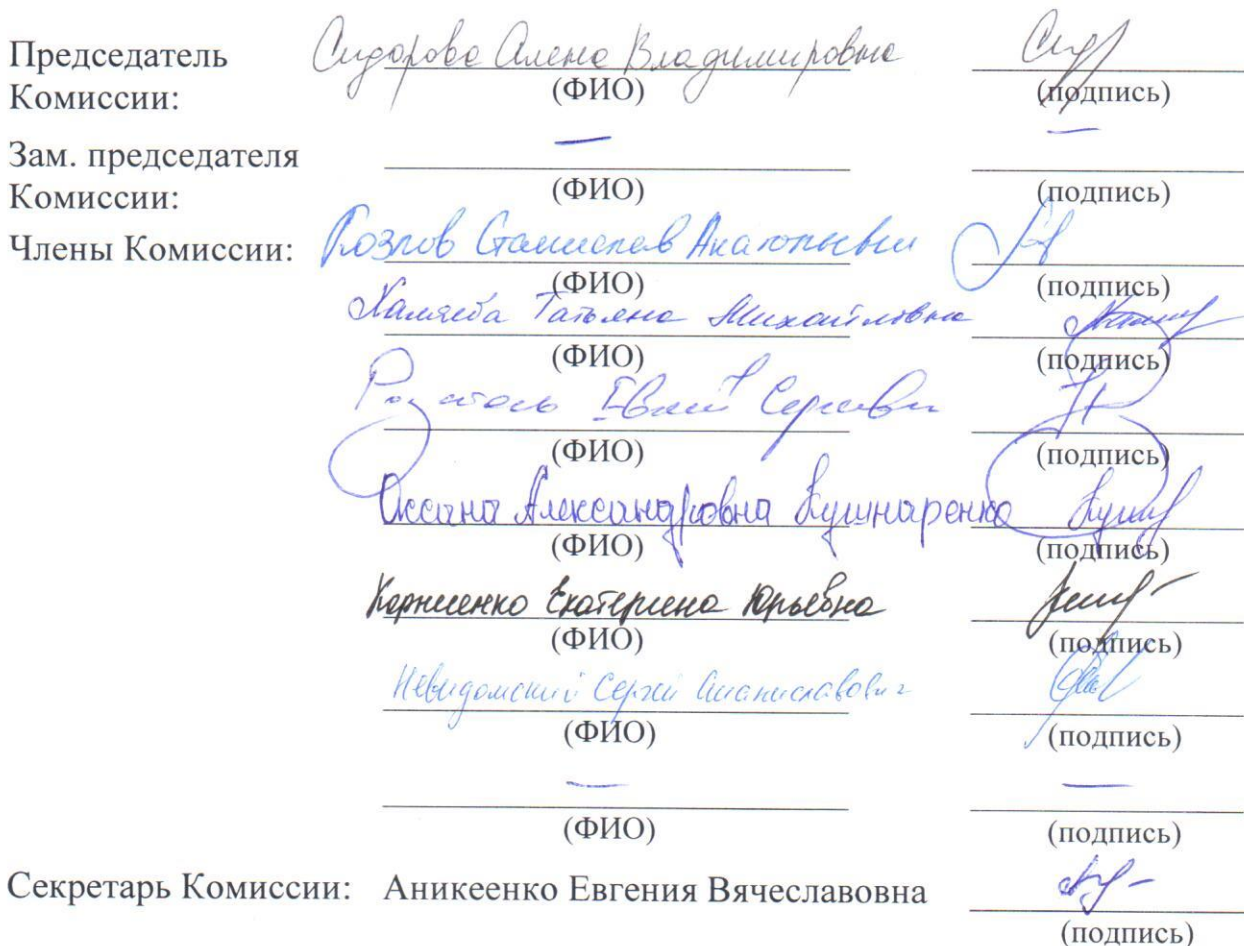 Председатель Сидорова Алена Владимировна
Комиссии: (ФИО) (подпись)
Зам. председателя — —
Комиссии: (ФИО) (подпись)
Члены Комиссии: Козлов Станислав Анатольевич
(ФИО) (подпись)
Татьяна Михайловна
(ФИО) (подпись)
Сергеевич
(ФИО) (подпись)
Оксана Александровна Кушнаренко
(ФИО) (подпись)
Корниенко Екатерина Юрьевна
(ФИО) (подпись)
Невидомский Сергей Станиславович
(ФИО) (подпись)
— —
(ФИО) (подпись)
Секретарь Комиссии: Аникеенко Евгения Вячеславовна
(подпись)